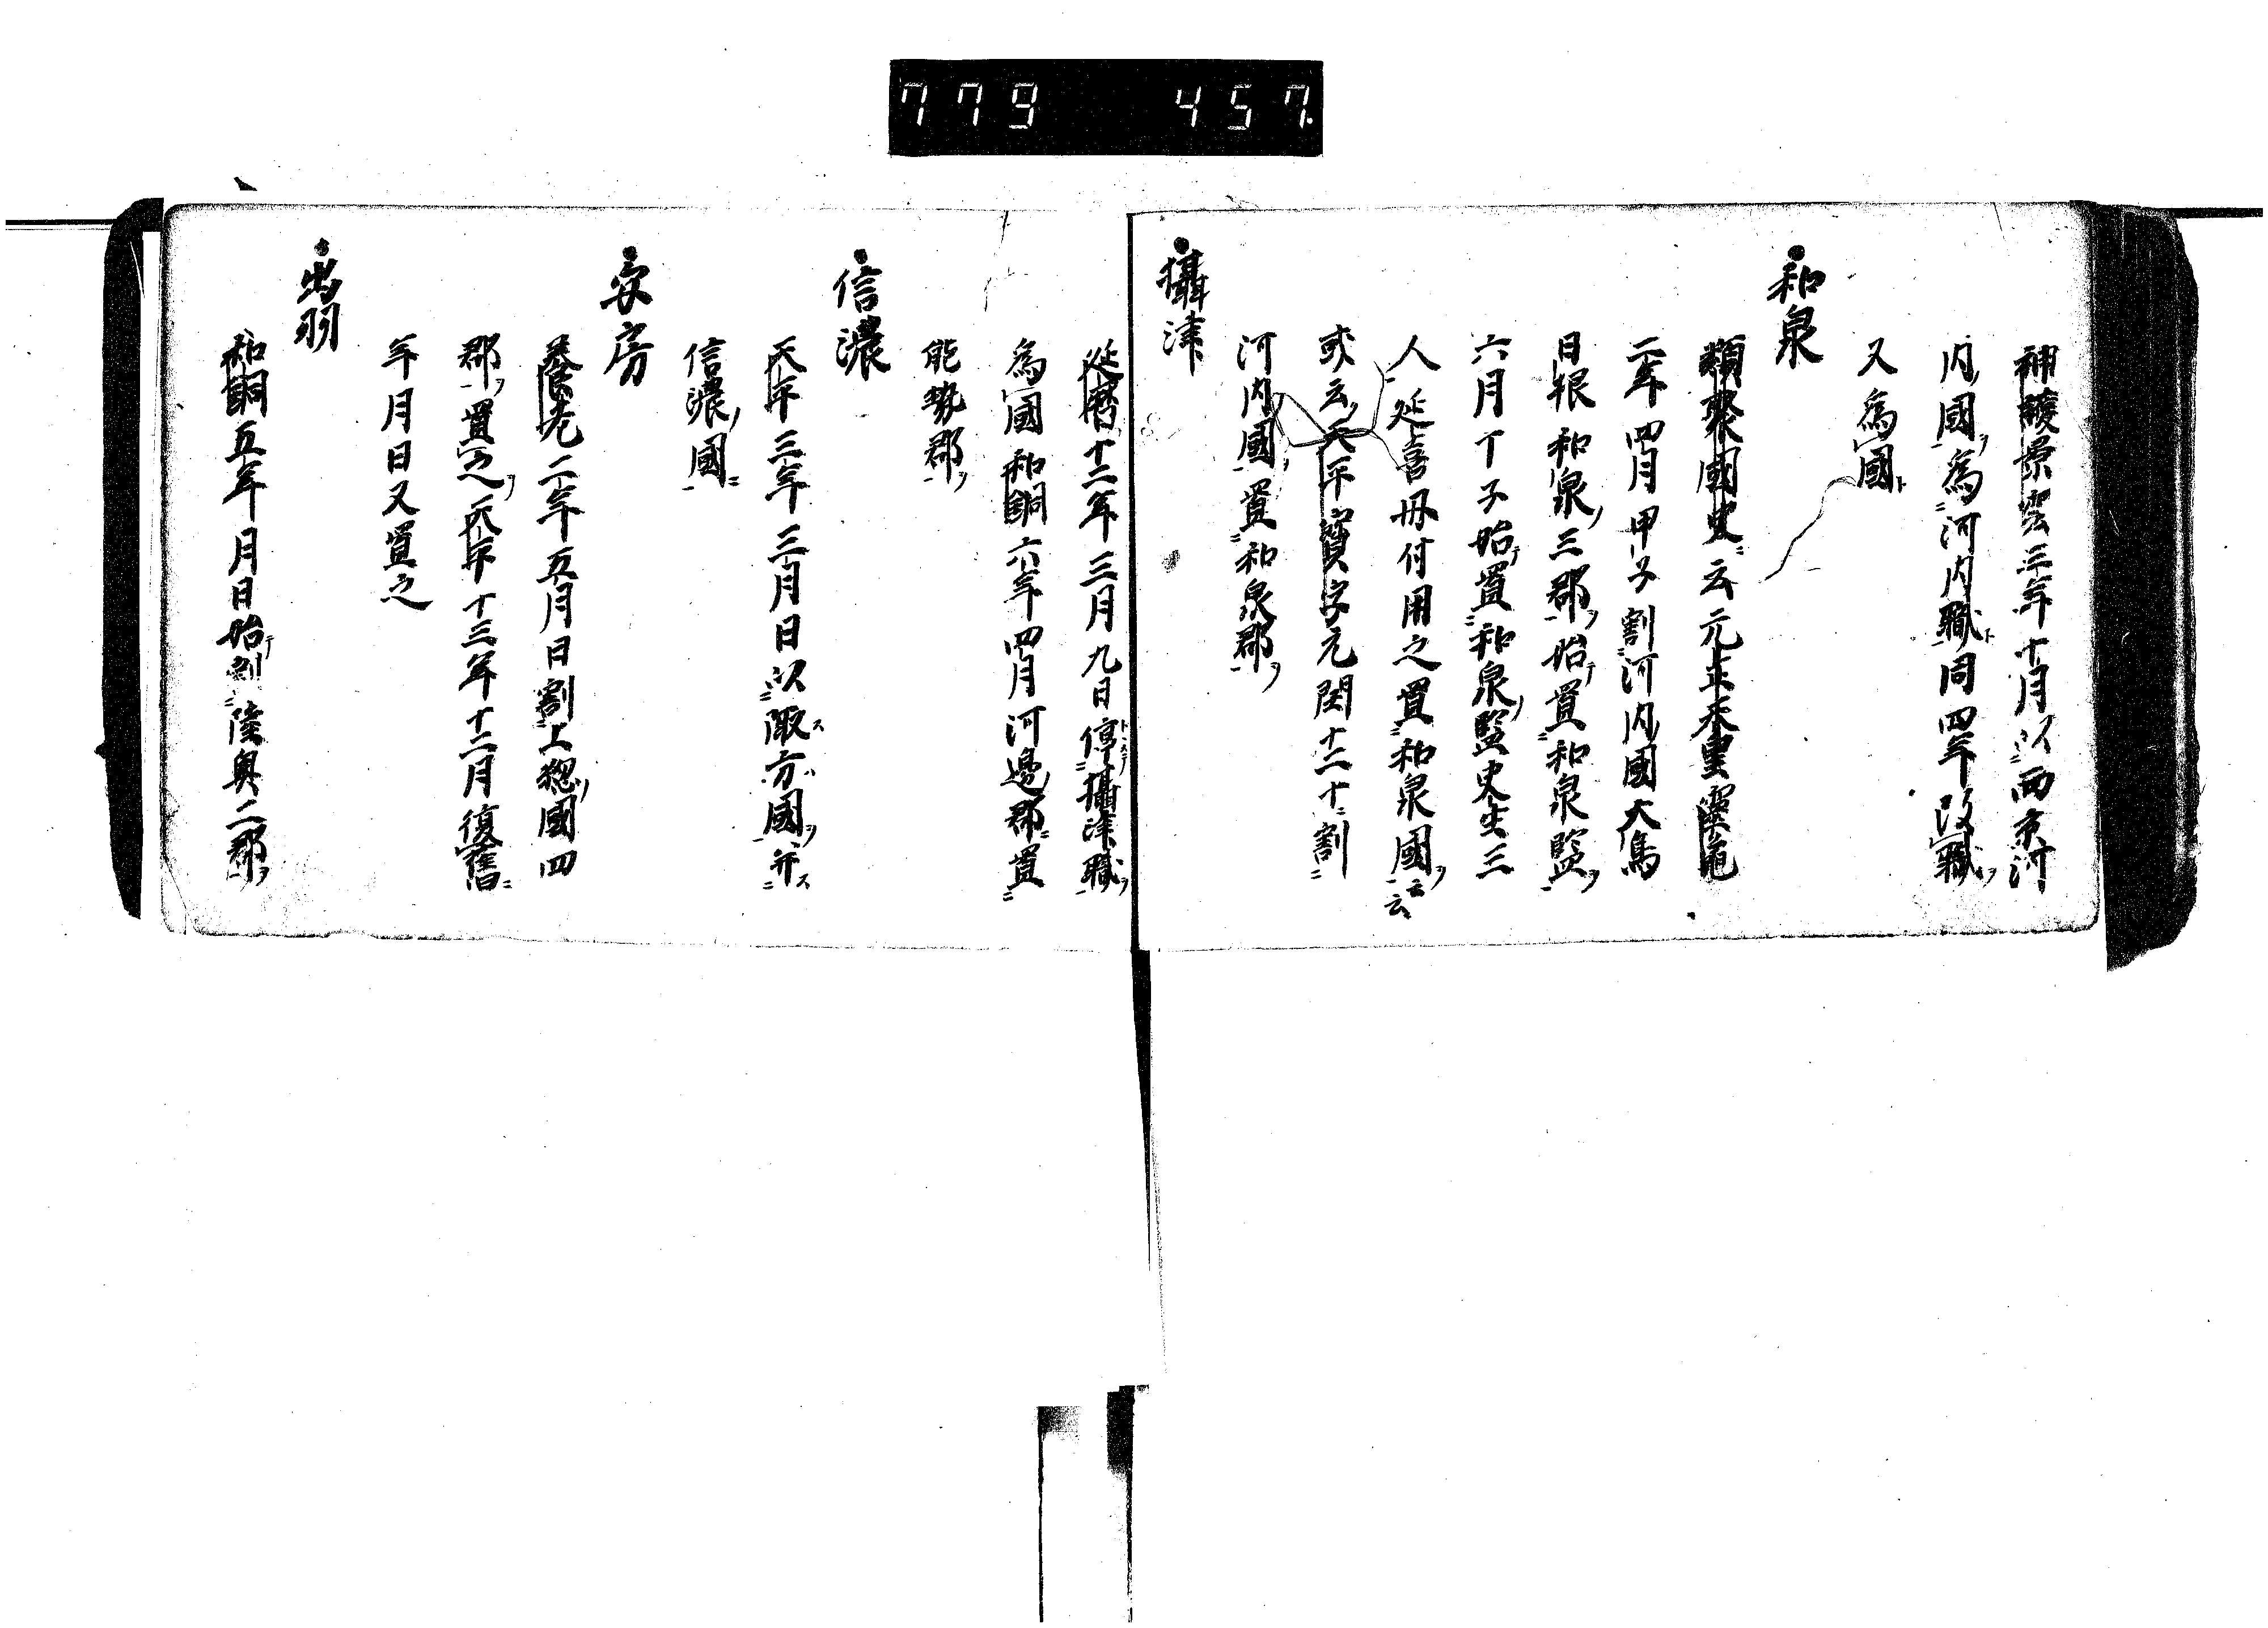 779 457
神護景雲三年十月以西京河
内國ヲ為河内職ト同四年改職ヲ
又為國ト
和泉
類聚國史ニ云元正天皇霊亀
二年四月甲子割河内國大鳥
日根和泉ノ三郡ヲ始テ置和泉監ヲ
六月丁子始テ置和泉ノ監史生三
人延喜毋付用之置和泉國ヲ云云
或云天平寳字元閏十二十割
河内國ノ置和泉郡ヲ
攝津
延暦十二年三月九日停攝津職ヲ
為國和銅六年四月河邊ノ郡ニ置
能勢郡ヲ
信濃
天平三年三月日以陬方國ヲ并ス
信濃ノ國ニ
安房
養老二年五月日割上総ノ國四
郡ヲ置之ヲ天平十三年十二月復舊ニ
年月日又置之
出羽
和銅五年月日始テ割陸奥二郡ヲ